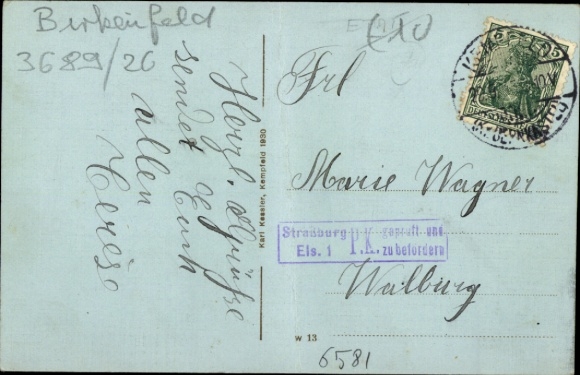 Birkenfeld
3689/26
Herzl. Grüße
sendet Euch
allen
Karl Kessler, Kempfeld 1930
Frl
Marie Wagner
Straßburg P.K. geprüft und
Els. 1 zu befördern
Walburg
W 13
6581